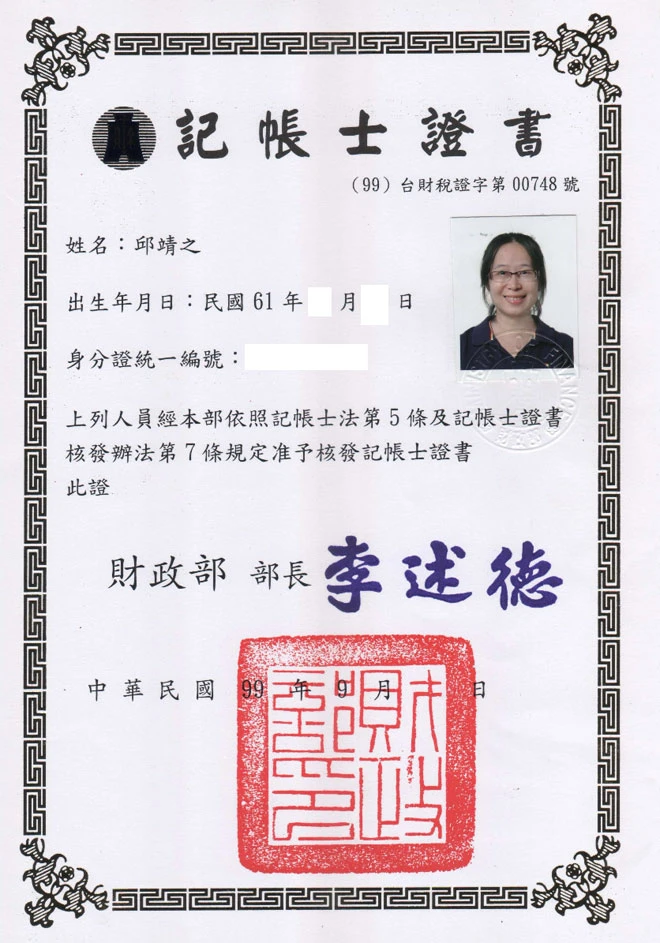 記帳士證書
（99）台財稅證字第 00748 號
姓名：邱靖之
出生年月日：民國 61 年 月 日
身分證統一編號：
上列人員經本部依照記帳士法第 5 條及記帳士證書
核發辦法第 7 條規定准予核發記帳士證書
此證
財政部 部長 李述德
中華民國 99 年 9 月 日
財政部印